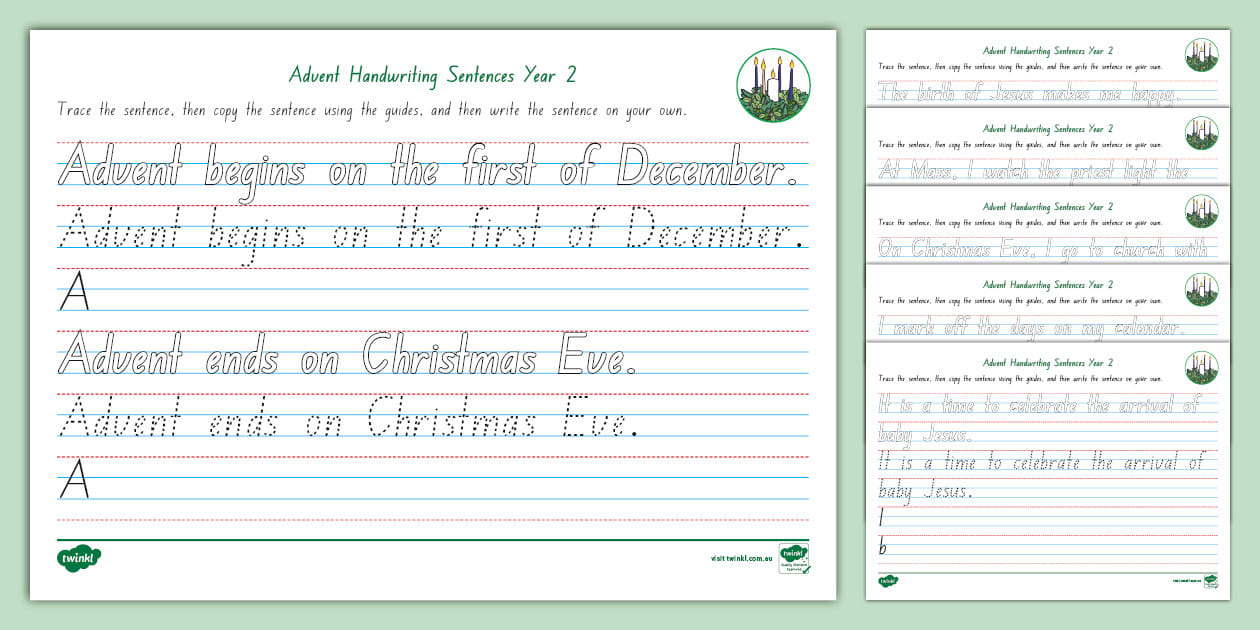 Advent Handwriting Sentences Year 2
Trace the sentence, then copy the sentence using the guides, and then write the sentence on your own.
Advent begins on the first of December.
Advent begins on the first of December.
A
Advent ends on Christmas Eve.
Advent ends on Christmas Eve.
A
twinkl
visit twinkl.com.au
twinkl
Quality Standard
Approved
Advent Handwriting Sentences Year 2
Trace the sentence, then copy the sentence using the guides, and then write the sentence on your own.
The birth of Jesus makes me happy.
Advent Handwriting Sentences Year 2
Trace the sentence, then copy the sentence using the guides, and then write the sentence on your own.
At Mass, I watch the priest light the
Advent Handwriting Sentences Year 2
Trace the sentence, then copy the sentence using the guides, and then write the sentence on your own.
On Christmas Eve, I go to church with
Advent Handwriting Sentences Year 2
Trace the sentence, then copy the sentence using the guides, and then write the sentence on your own.
I mark off the days on my calendar.
Advent Handwriting Sentences Year 2
Trace the sentence, then copy the sentence using the guides, and then write the sentence on your own.
It is a time to celebrate the arrival of
baby Jesus.
It is a time to celebrate the arrival of
baby Jesus.
I
b
twinkl
visit twinkl.com.au
twinkl